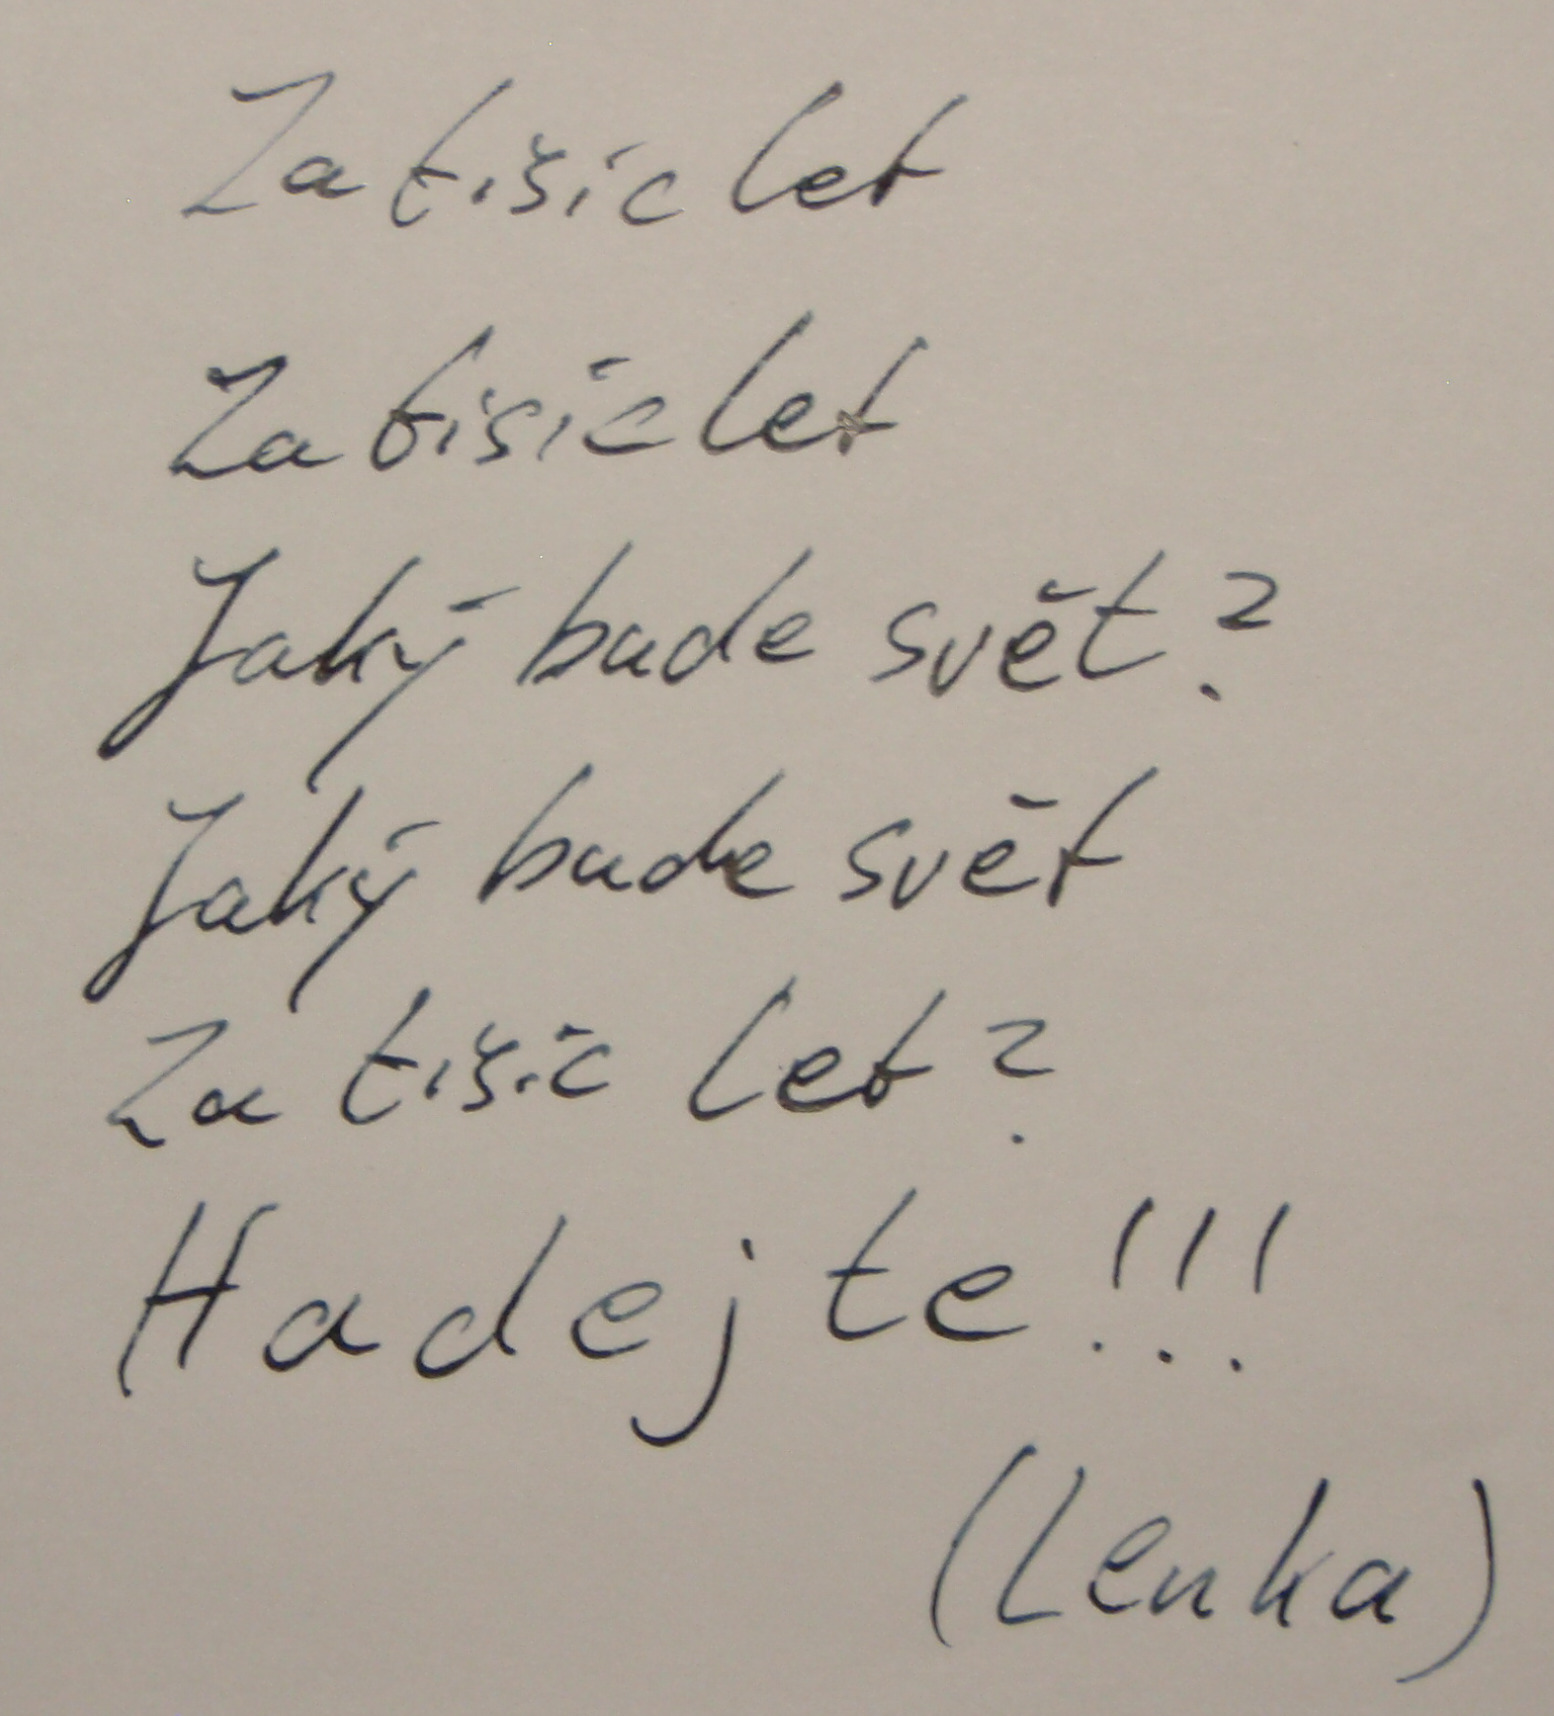 Za tisíc let
Za tisíc let
Jaký bude svět?
Jaký bude svět
Za tisíc let?
Hadejte!!!
(Lenka)